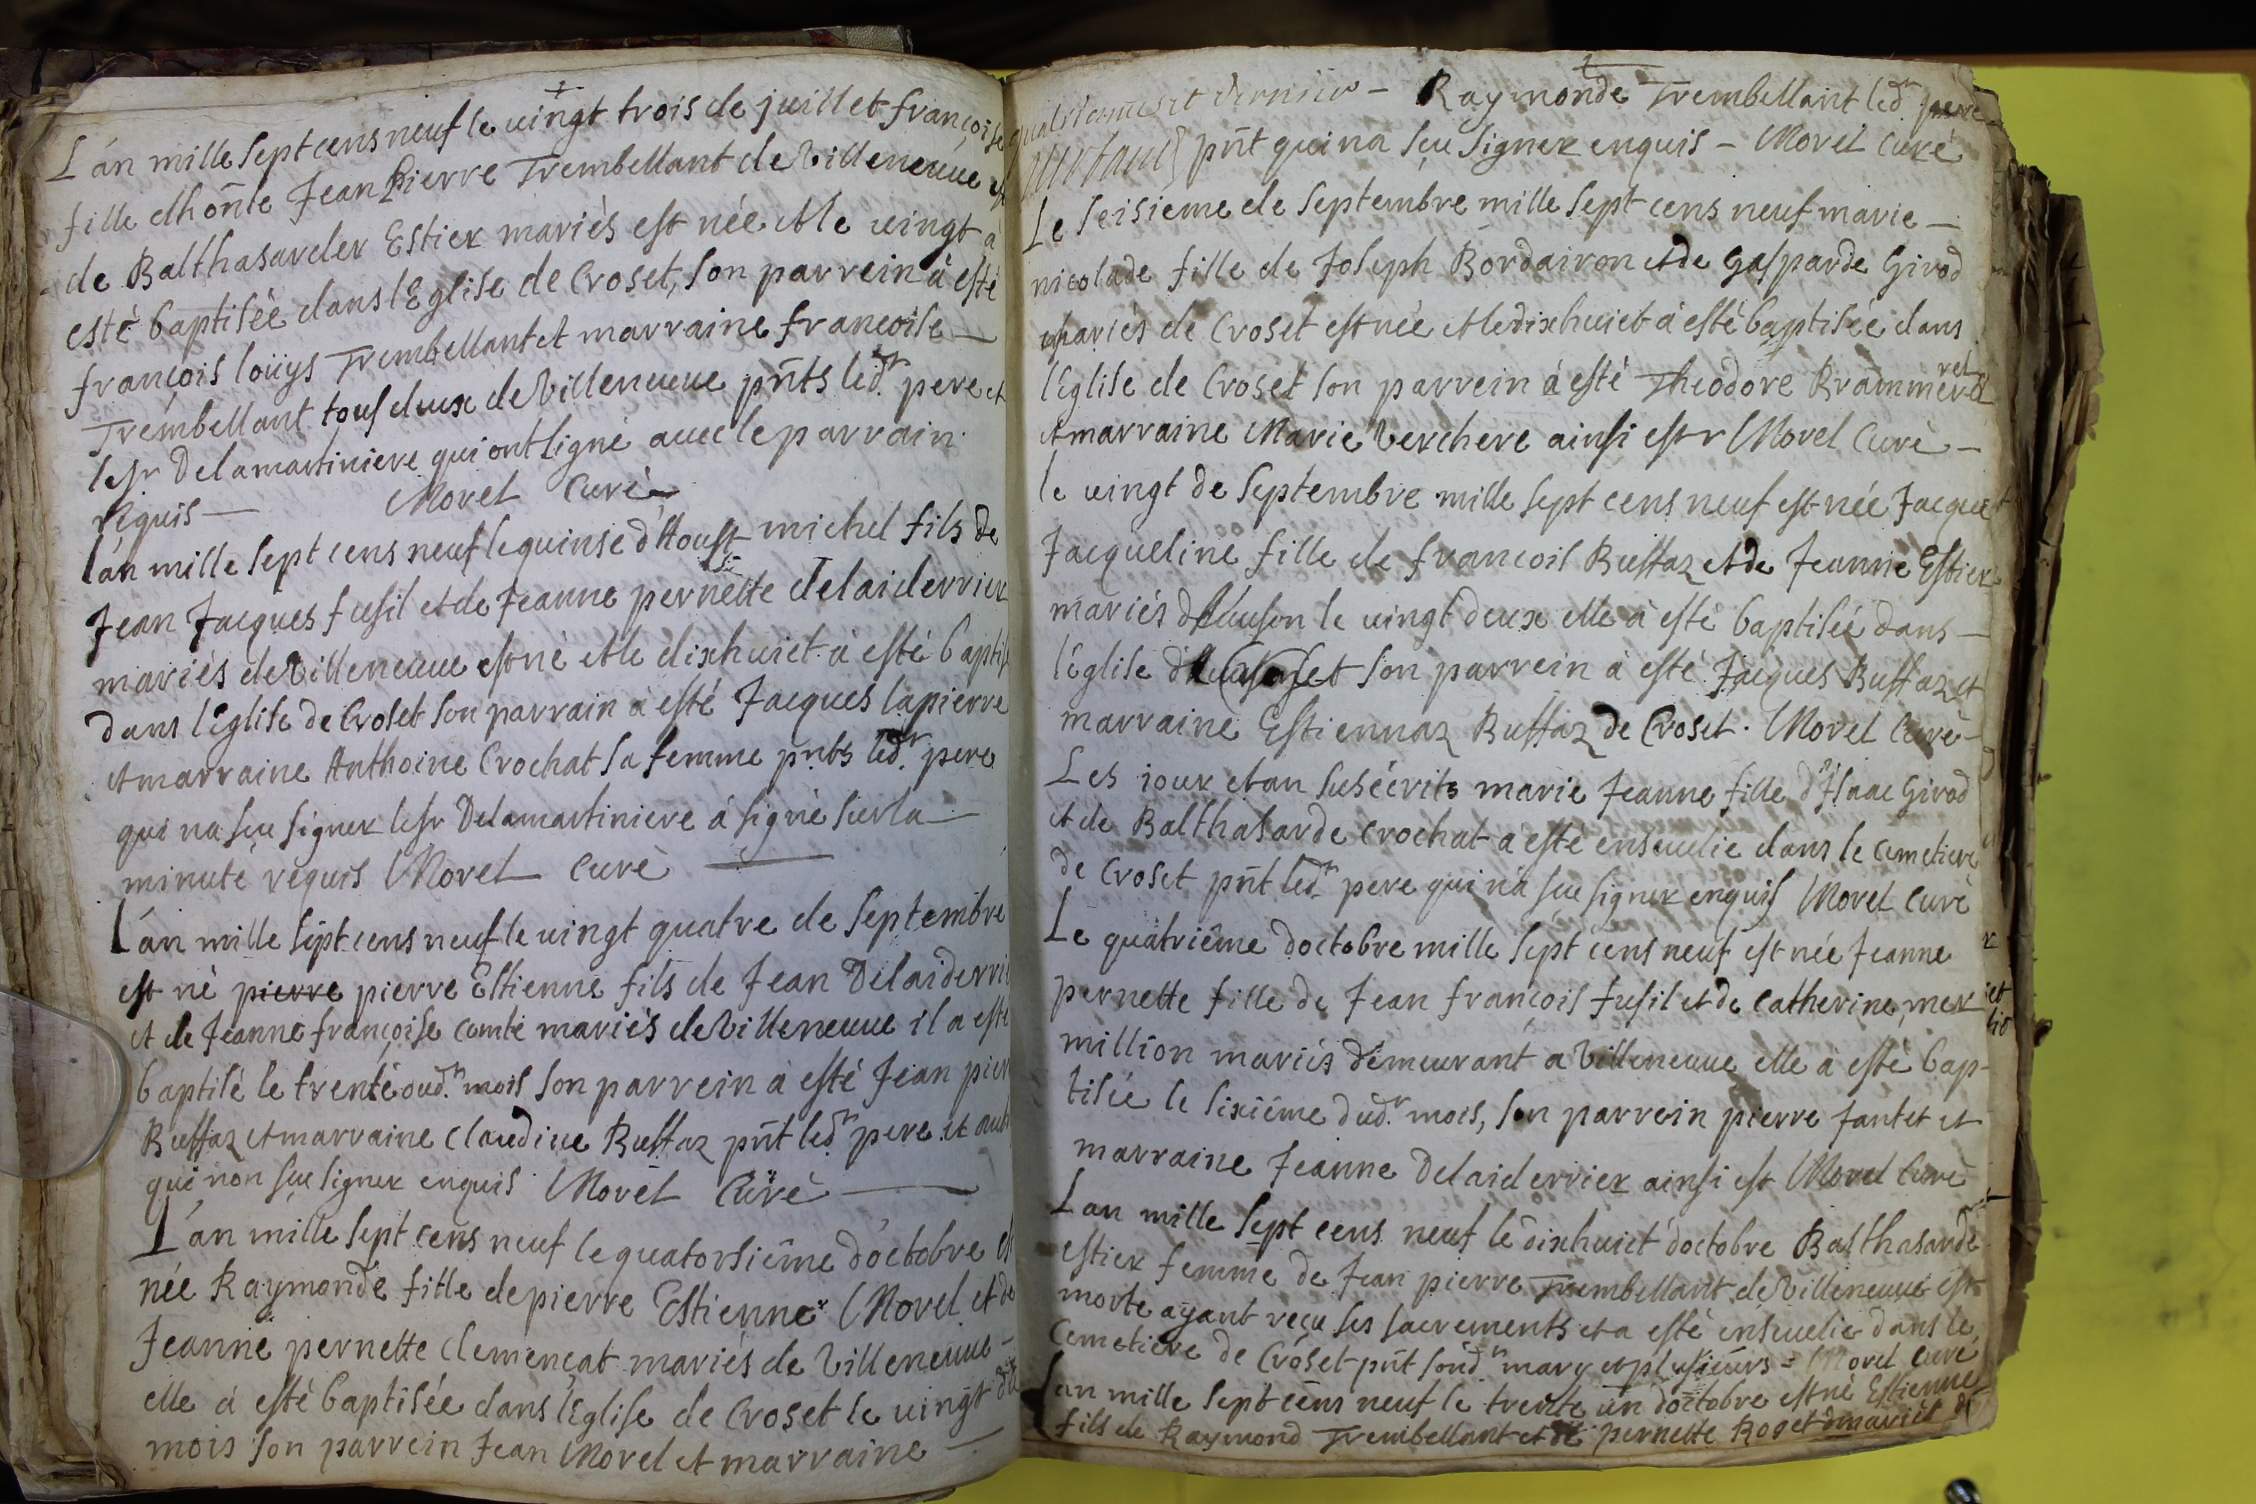 L'an mille sept cens neuf le vingt trois de juillet françoise
fille d'hon̄le Jean Pierre Trembellant de Villeneuue et
de Balthasarder Estier mariés est née et le vingt à
esté baptisée dans l'Eglise de Croset, son parrein à esté
françois loüys Trembellant et marraine françoise —
Trembellant tous deux de Villeneuue pñts led.r pere et
le sr Delamartiniere qui ont signé auec le parrain
réquis — Morel Curé
L'an mille sept cens neuf le quinse d'Aoust michel fils de
Jean Jacques fusil et de Jeanne pernette Delaiderrier
mariés de Villeneuue est né et le dixhuict à esté baptisé
dans l'Eglise de Croset son parrain à esté Jacques lapierre
et marraine Anthoine Crochat sa femme pñts led.r pere
qui na sçu signer le sr Delamartiniere à signé sur la —
minute requis Morel Curé —
L'an mille sept cens neuf le vingt quatre de Septembre
est né pierre pierre Estienne fils de Jean Delaiderrier
et de Jeanne françoise comte mariés de Villeneuue il a esté
baptisé le trente oud.t mois son parrein à esté Jean pierre
Buffaz et marraine Claudine Buffaz pñt led.r pere et
qui non sçu signer enquis Morel Curé —
L'an mille sept cens neuf le quatorsiême d'octobre est
née Raymonde fille de pierre Estienne Morel et de
Jeanne pernette Clemençat mariés de Villeneuue —
elle à esté baptisée dans l'Eglise de Croset le vingt dud
mois son parrein Jean Morel et marraine —
Raymonde Trembellant led.r pere
pñt qui na sçu signer enquis — Morel Curé
Le seisieme de Septembre mille sept cens neuf marie —
nicolade fille de Joseph Bordairon et de Gasparde Girod
mariés de Croset est née et le dixhuict à esté baptisée dans
l'Eglise de Croset son parrein à esté Theodore Brammerel
et marraine Marie Verchere ainsi est Morel Curé —
le vingt de Septembre mille sept cens neuf est née
Jacqueline fille de françois Buffaz et de Jeanne Estier
mariés le vingt deux elle à esté baptisée dans —
l'Eglise son parrein à esté Jacques Buffaz et
marraine Estiennaz Buffaz de Croset. Morel Curé —
Les iour et an susécrits marie Jeanne fille d'Isaac Girod
et de Balthasarde Crochat à esté enseuelie dans le cemetiere
de Croset pñt led.r pere qui n'a sçu signer enquis Morel Curé
Le quatriême d'octobre mille sept cens neuf est née Jeanne
pernette fille de Jean françois fusil et de Catherine mer
million mariés demeurant a Villeneuue elle à esté bap-
tisée le sixiême dud.t mois, son parrein pierre fantet et
marraine Jeanne Delaiderrier ainsi est Morel Curé
L'an mille sept cens neuf le dixhuict d'octobre Balthasarde
estier femme de Jean pierre Trembellant de Villeneuue est
morte ayant reçu ses sacrements et a esté enseuelie dans le
Cemetiere de Croset pñt sond.t mary et plusieurs = Morel Curé
L'an mille sept cens neuf le trente un d'octobre est né Estienne
fils de Raymond Trembellant et de pernette Roget mariés